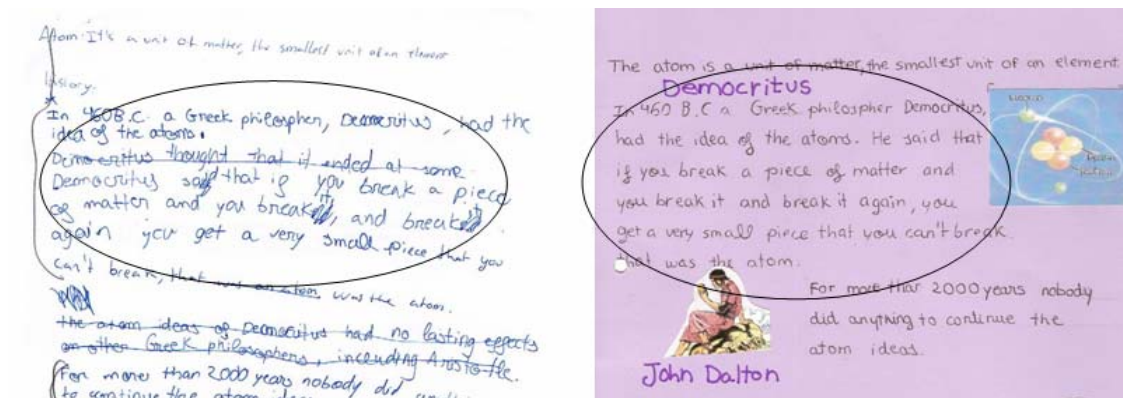 Atom: It's a unit of matter, the smallest unit of an element
History.
In 460 B.C. a Greek philospher, Democritus, had the
idea of the atoms.
Democritus thought that it ended at some
Democritus said that if you break a piece
of matter and you break it, and break
again you get a very small piece that you
can't break, that was an atom. was the atom.
the atom ideas of Democritus had no lasting effects
on other Greek philosophers, including Aristotle.
For more than 2000 years nobody did
to continue the atom ideas
The atom is a unit of matter, the smallest unit of an element
Democritus
In 460 B.C a Greek philospher Democritus,
had the idea of the atoms. He said that
if you break a piece of matter and
you break it and break it again, you
get a very small piece that you can't break.
that was the atom.
For more than 2000 years nobody
did anything to continue the
atom ideas.
John Dalton